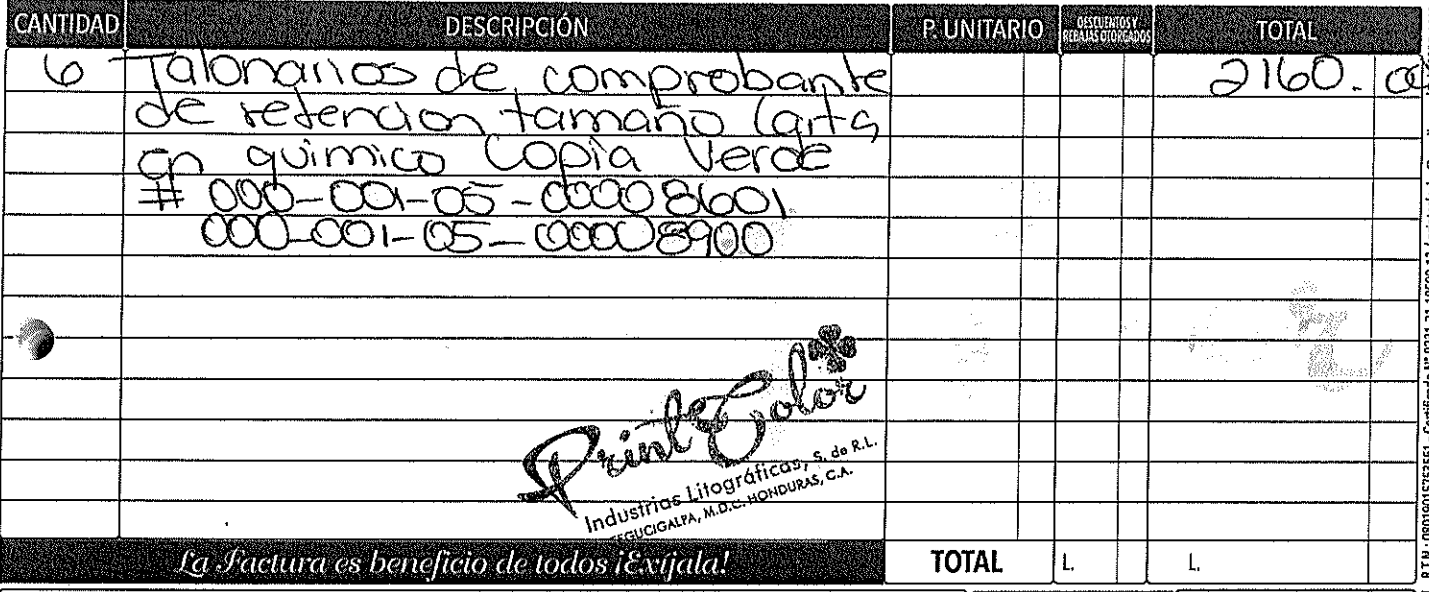 CANTIDAD DESCRIPCIÓN P. UNITARIO DESCUENTOS Y REBAJAS OTORGADOS TOTAL
6 Talonarios de comprobante 2160.00
de retencion tamaño carta
en quimico Copia Verde
# 000-001-05-00008601
000-001-05-00008900
Print Color
Industrias Litográficas, S. de R.L.
TEGUCIGALPA, M.D.C. HONDURAS, C.A.
La Factura es beneficio de todos ¡Exíjala! TOTAL L. L.